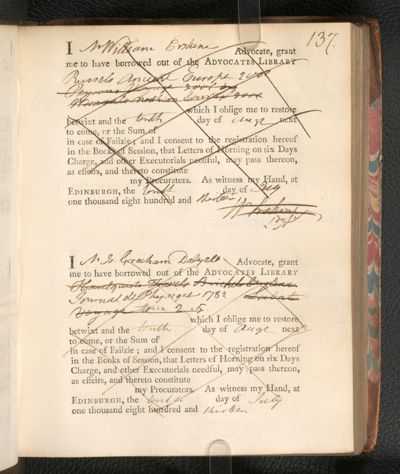 137.
I Mr William Erskine Advocate, grant
me to have borrowed out of the ADVOCATES LIBRARY
Russels Ancient Europe 2 vols
betwixt and the tenth which I oblige me to restore
day of Augt next
to come, or the Sum of
in case of Failzie; and I consent to the registration hereof
in the Books of Session, that Letters of Horning on six Days
Charge, and other Executorials needful, may pass thereon,
as effeirs, and thereto constitute
my Procurators. As witness my Hand, at
EDINBURGH, the tenth day of July
one thousand eight hundred and thirteen
W Erskine
I Mr Jo Graham Dalyell Advocate, grant
me to have borrowed out of the ADVOCATES LIBRARY
Journal de Physique 1782
Voyage tom 2. 5
which I oblige me to restore
betwixt and the tenth day of Augt next
to come, or the Sum of
in case of Failzie; and I consent to the registration hereof
in the Books of Session, that Letters of Horning on six Days
Charge, and other Executorials needful, may pass thereon,
as effeirs, and thereto constitute
my Procurators. As witness my Hand, at
EDINBURGH, the tenth day of July
one thousand eight hundred and thirteen